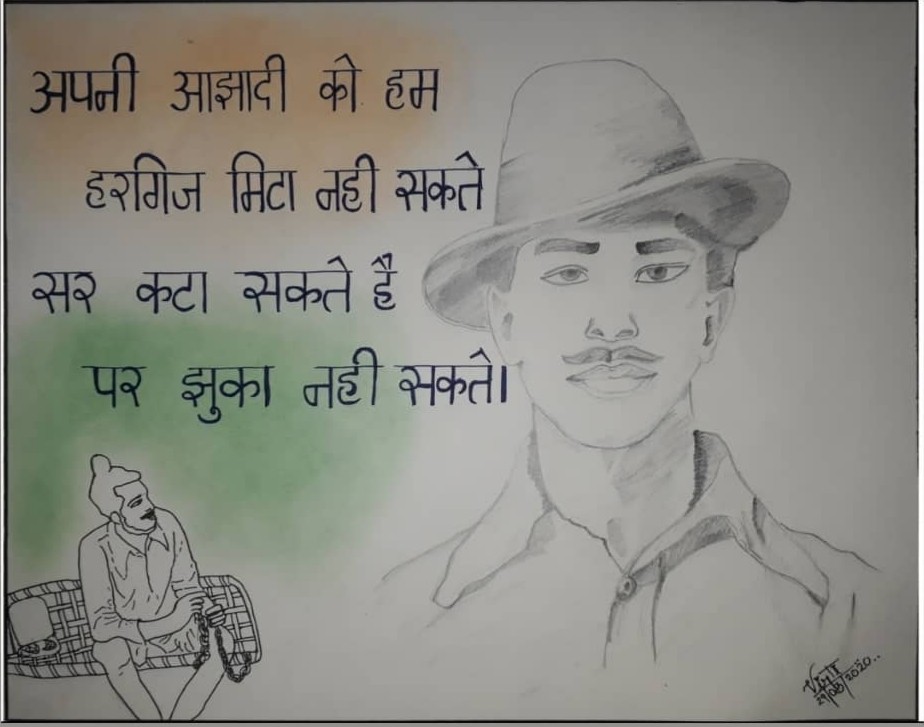 अपनी आझादी को हम
हरगिज मिटा नही सकते
सर कटा सकते है
पर झुका नही सकते।
29/08/2020..